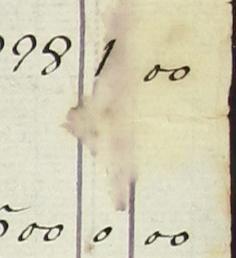 998 1 00
500 0 00